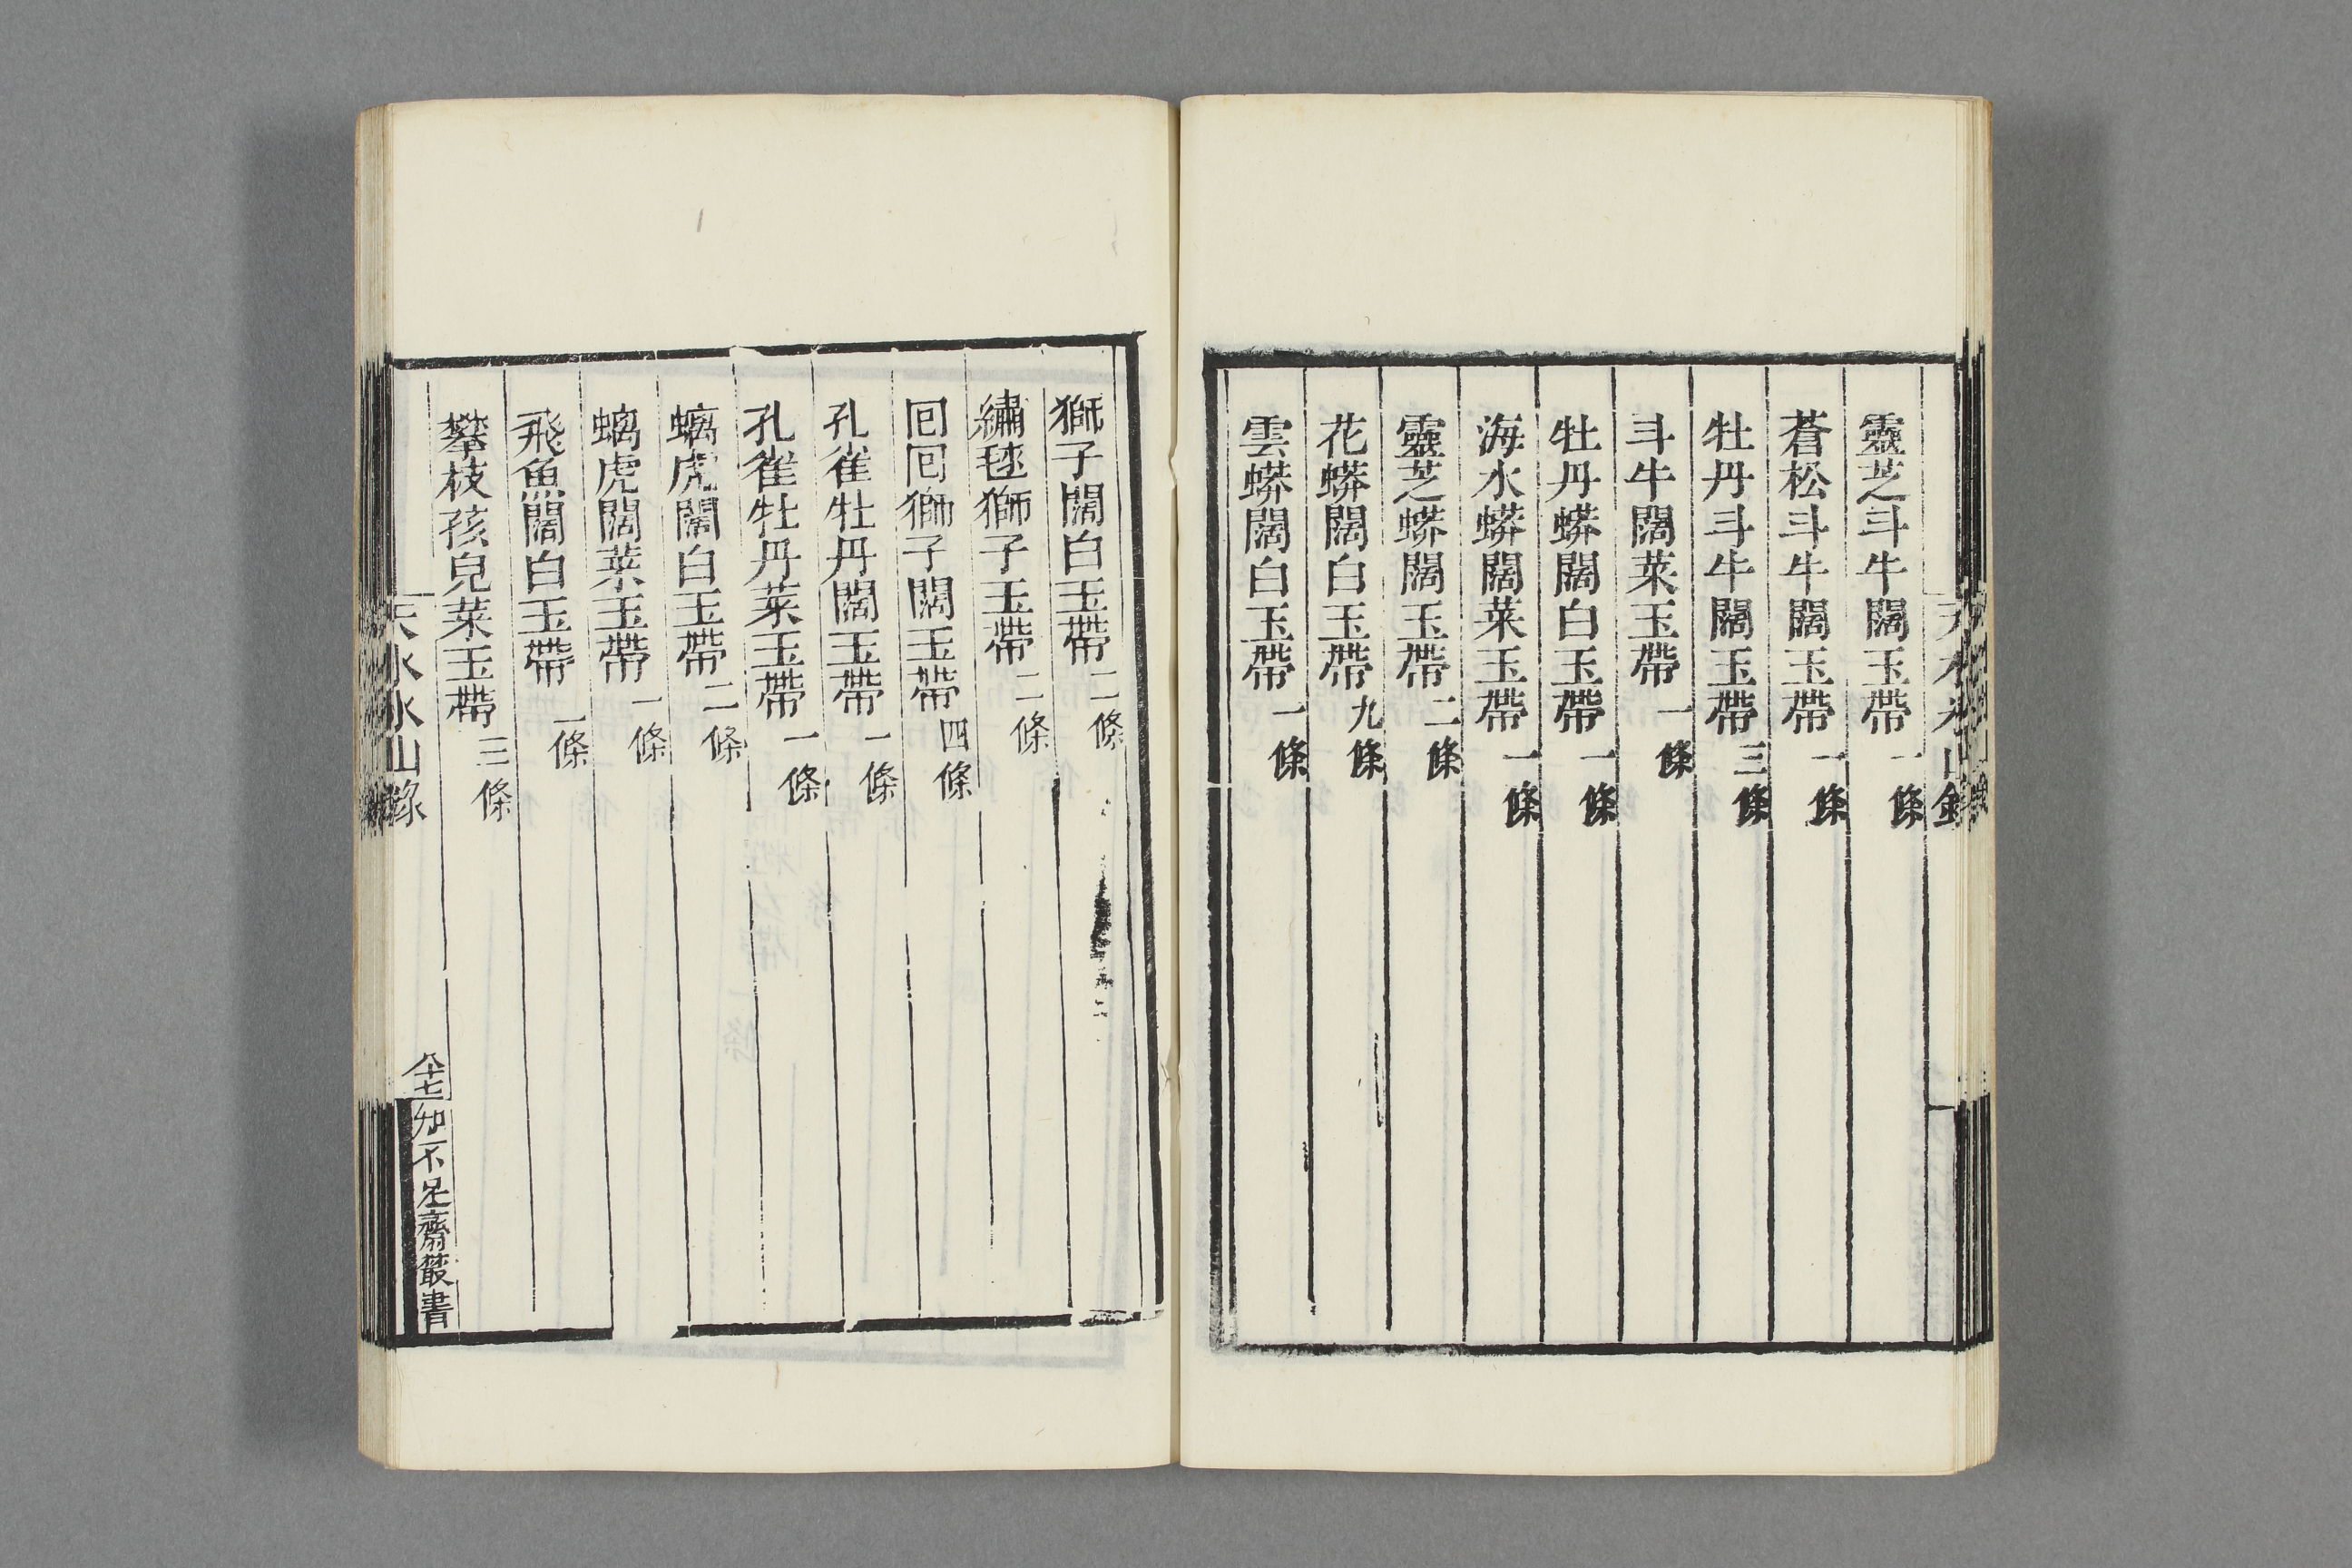 靈芝斗牛闊玉帶一條
蒼松斗牛闊玉帶一條
牡丹斗牛闊玉帶三條
斗牛闊菜玉帶一條
牡丹蟒闊白玉帶一條
海水蟒闊菜玉帶一條
靈芝蟒闊玉帶二條
花蟒闊白玉帶九條
雲蟒闊白玉帶一條
獅子闊白玉帶二條
繡毬獅子玉帶二條
回回獅子闊玉帶四條
孔雀牡丹闊玉帶一條
孔雀牡丹菜玉帶一條
螭虎闊白玉帶二條
螭虎闊菜玉帶一條
飛魚闊白玉帶一條
攀枝孩兒菜玉帶三條
天水冰山錄
八十七
知不足齋叢書